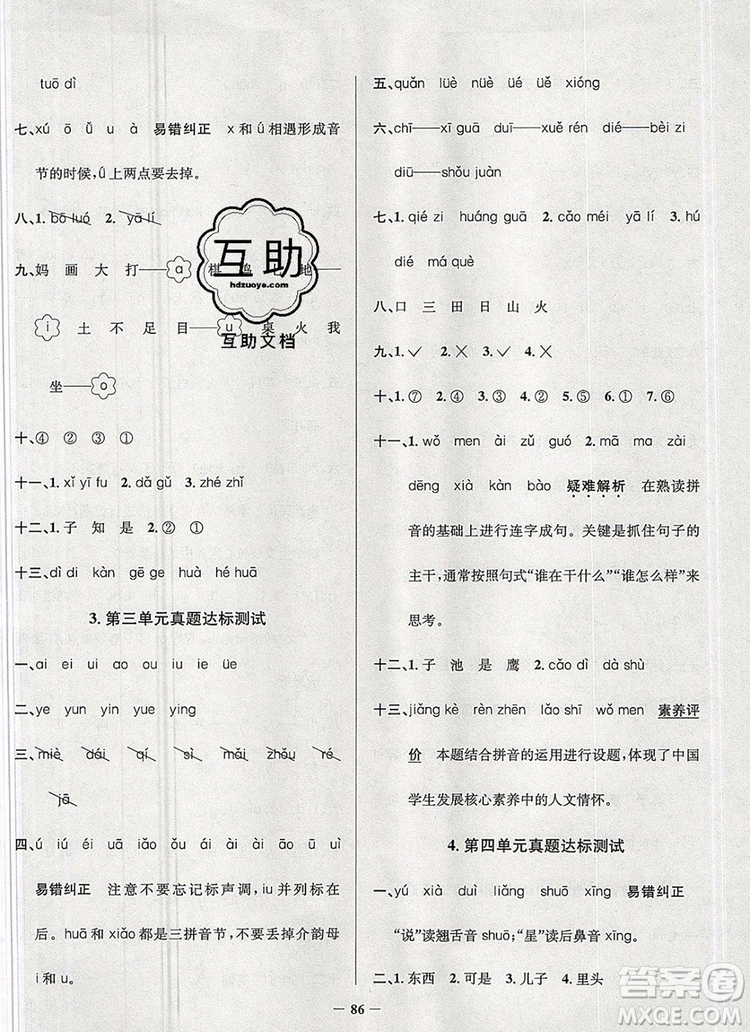 tuō dì
七、xú ō ǔ u à 易错纠正 x 和 ǘ 相遇形成音
节的时候，ǘ 上两点要去掉。
八、1. bō luó 2. yā lí
九、妈 画 大 打——a 棋 鸡 地——
i 土 不 足 目——u 桌 火 我
坐——o
十、④ ② ③ ①
十一、1. xǐ yī fu 2. dǎ gǔ 3. zhé zhǐ
十二、1. 子 知 是 2. ② ①
十三、dì di kàn gē ge huà hé huā
3. 第三单元真题达标测试
一、ai ei ui ao ou iu ie üe
二、ye yun yin yue ying
三、miè dái qí sì mǎi zhǒu ré
jā
四、ú iú éi uā iǎo ǎu ái ài āo ū uì
易错纠正 注意不要忘记标声调，iu 并列标在
后。huā 和 xiǎo 都是三拼音节，不要丢掉介韵母
i 和 u。
五、quǎn lüè nüè üě xióng
六、chī——xī guā duī——xuě rén dié——bèi zi
diū——shǒu juàn
七、1. qié zi huáng guā 2. cǎo méi yā lí 3. hú
dié má què
八、口 三 田 日 山 火
九、1. ✓ 2. ✕ 3. ✓ 4. ✕
十、1. ⑦ 2. ④ 3. ② 4. ③ 5. ① 6. ⑥ 7. ⑤
十一、1. wǒ men ài zǔ guó 2. mā ma zài
dēng xià kàn bào 疑难解析 在熟读拼
音的基础上进行连字成句。关键是抓住句子的
主干，通常按照句式“谁在干什么”“谁怎么样”来
思考。
十二、1. 子 池 是 鹰 2. hǎo duō dà shù
十三、jiǎng kè rèn zhēn lǎo shī wǒ men 素养评
价 本题结合拼音的运用进行设题，体现了中国
学生发展核心素养中的人文情怀。
4. 第四单元真题达标测试
一、yú xià duì liǎng shuō xīng 易错纠正
“说”读翘舌音 shuō；“星”读后鼻音 xīng。
二、1. 东西 2. 可是 3. 儿子 4. 里头
— 86 —
互助
hdzuoye.com
互助文档
答案圈
MXQE.COM